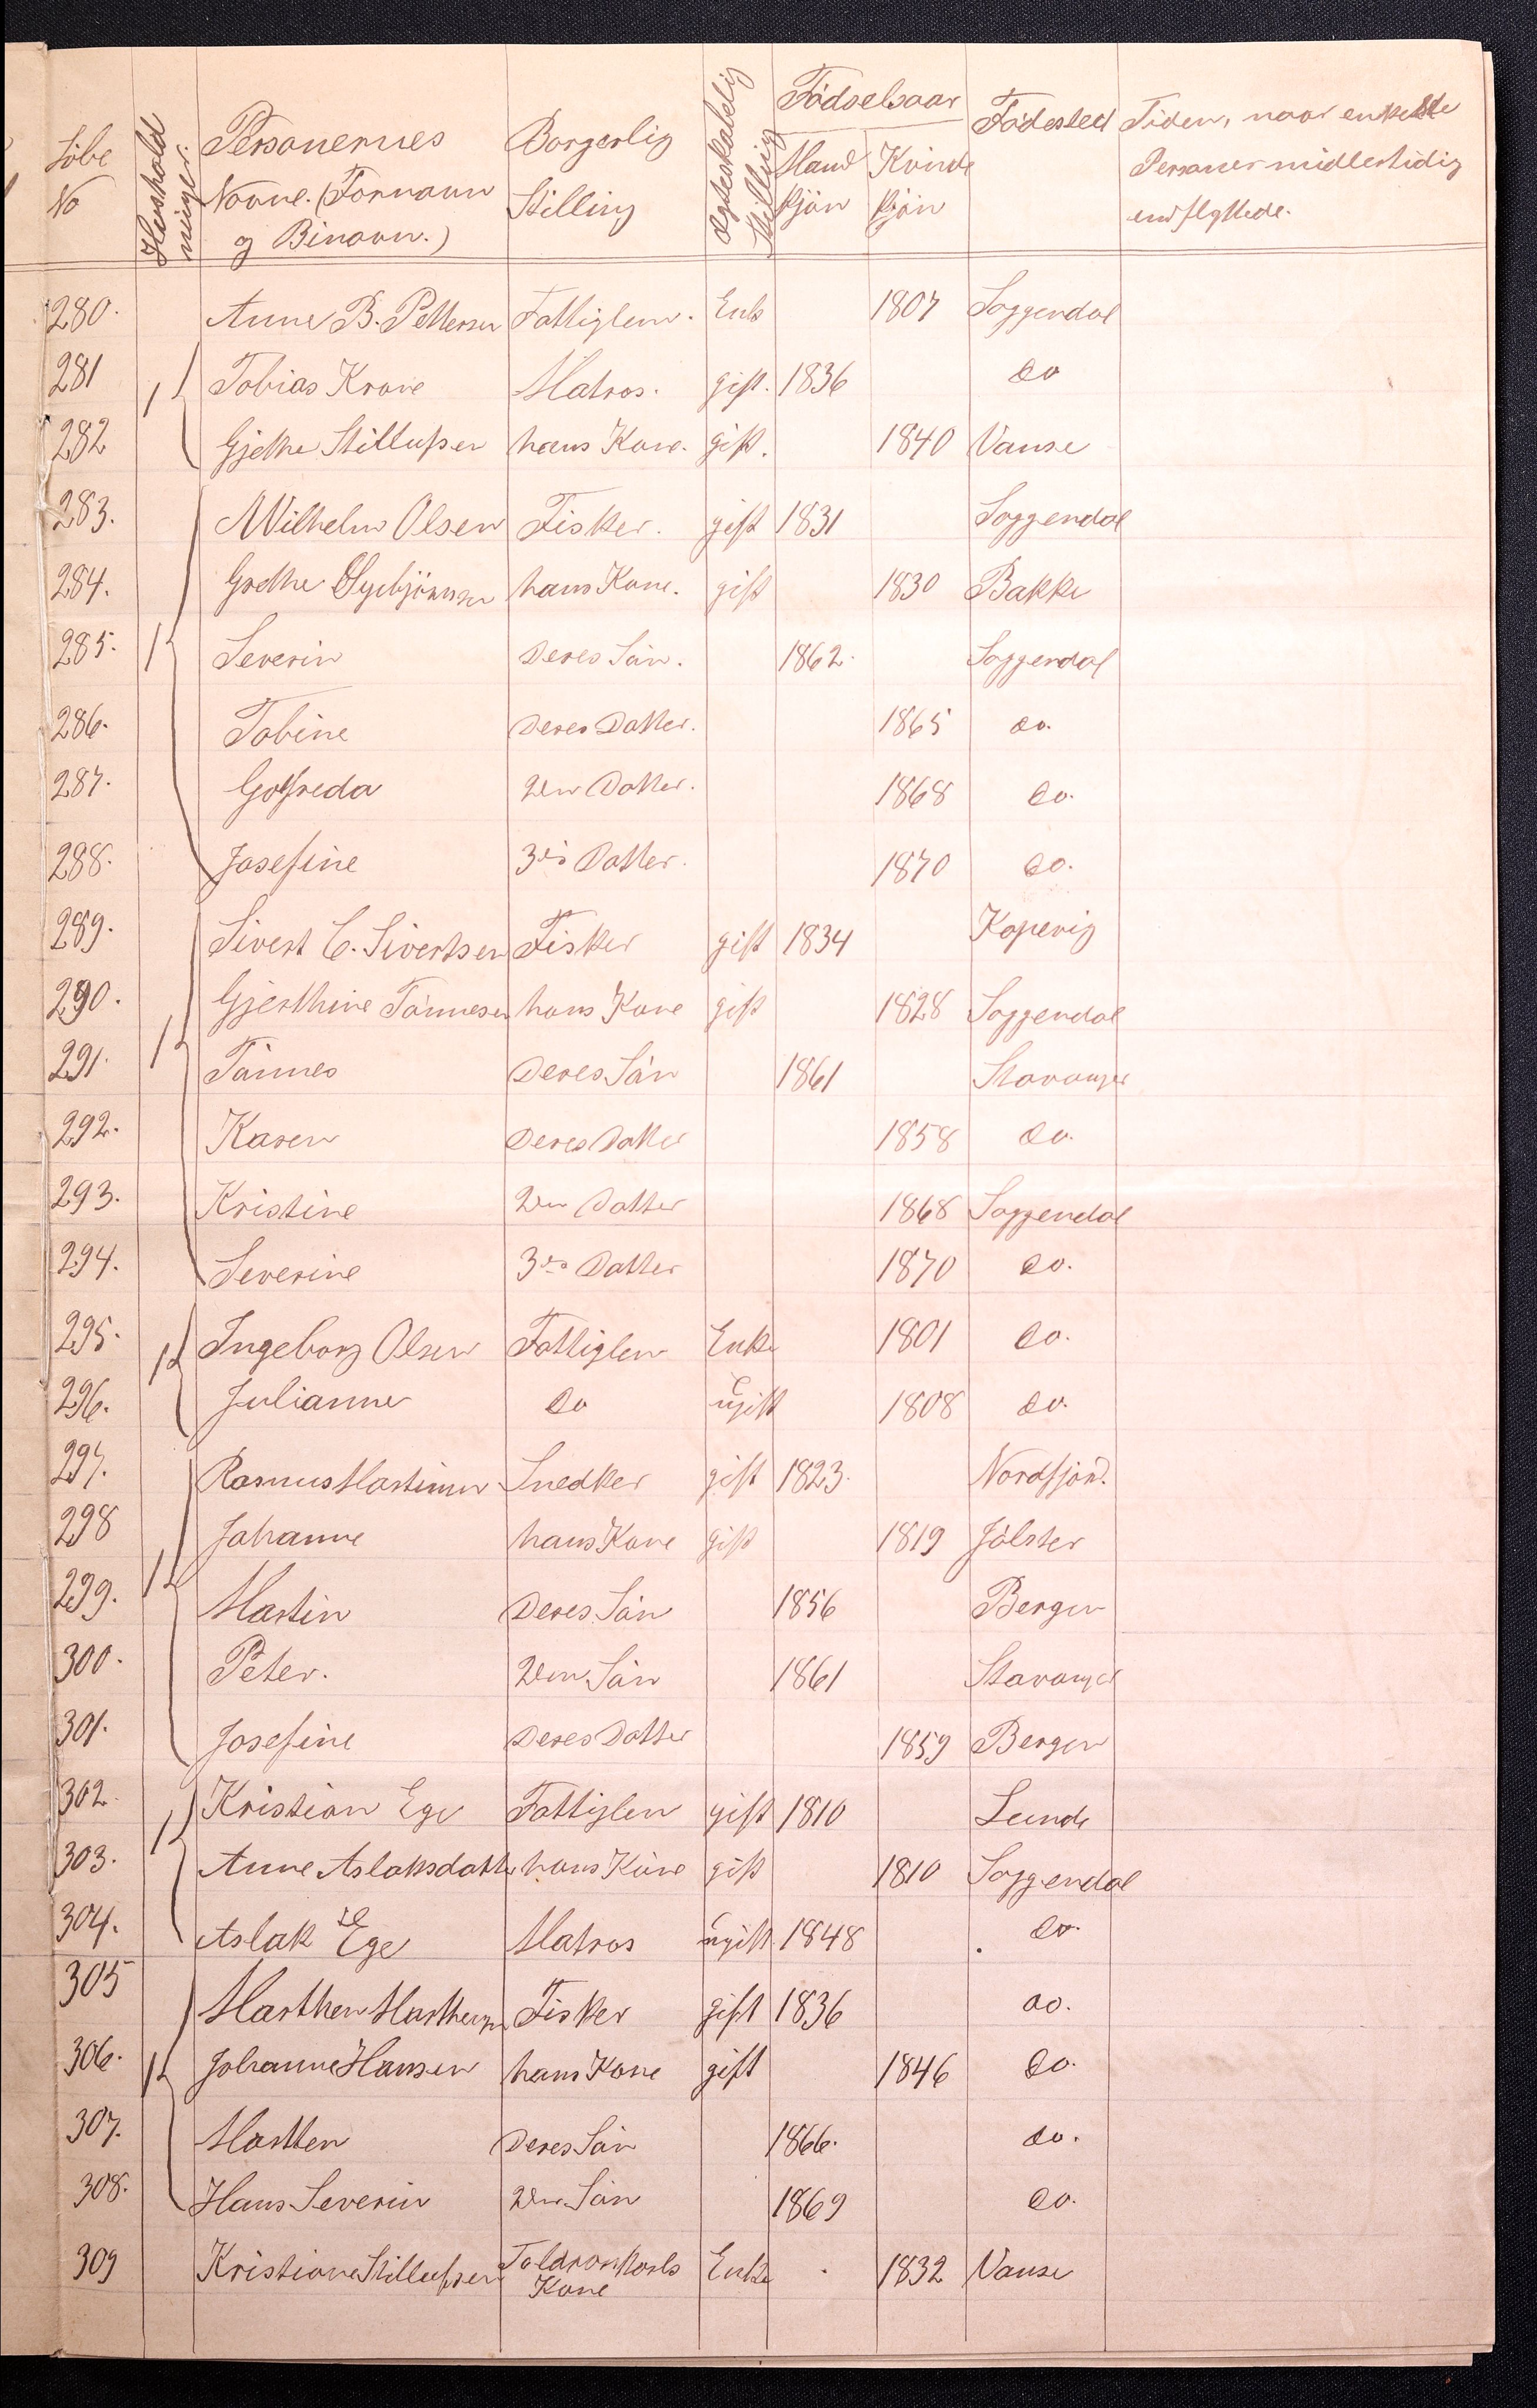 Løbe No | Hushold ninger. | Personernes Navne. (Fornavn og Binavn.) | Borgerlig Stilling | Ægteskabelig Stilling | Fødselsaar Mand kjøn | Kvinde kjøn | Fødested | Tiden, naar enkelte Personer midlertidig indflyttede.
280. Anne B. Pettersen Fattiglem. Enke 1807 Soggendal
281 1 Tobias Krone Matros. gift. 1836 do
282 Gjethe Stillufsen hans Kone. gift. 1840 Vanse
283. Wilhelm Olsen Fisker. gift 1831 Soggendal
284. Grethe hans Kone. gift 1830 Bakke
285. 1 Severin Deres Søn. 1862. Soggendal
286. Tobine Deres Datter. 1865 do.
287. Gotfreda 2den Datter. 1868 do.
288. Josefine 3die Datter. 1870 do.
289. Sivert C. Sivertsen Fisker gift 1834 Kopervig
290. 1 Gjerthine Tønnesen hans Kone gift 1828 Soggendal
291. Tønnes Deres Søn 1861 Stavanger
292. Karen Deres Datter 1858 do.
293. Kristine 2den Datter 1868 Soggendal
294. Severine 3die Datter 1870 do.
295. 1 Ingeborg Olsen Fattiglem Enke 1801 do.
296. Julianne do ugift 1808 do.
297. Rasmus Martinsen Snedker gift 1823. Nordfjord.
298 Johanne hans Kone gift 1819 Jølster
299. 1 Martin Deres Søn 1856 Bergen
300. Peter. 2den Søn 1861 Stavanger
301. Josefine Deres Datter 1859 Bergen
302. 1 Kristian Ege Fattiglem gift 1810 Lunde
303. Anne Aslaksdatter hans Kone gift 1810 Soggendal
304. Aslak Ege Matros ugift 1848 do.
305 Marthen Marthensen Fisker gift 1836 do.
306. 1 Johanne Hansen hans Kone gift 1846 do.
307. Marthen Deres Søn 1866. do.
308. Hans Severin 2den Søn 1869 do.
309 Kristiane Stillufsen Kone Enke 1832 Vanse